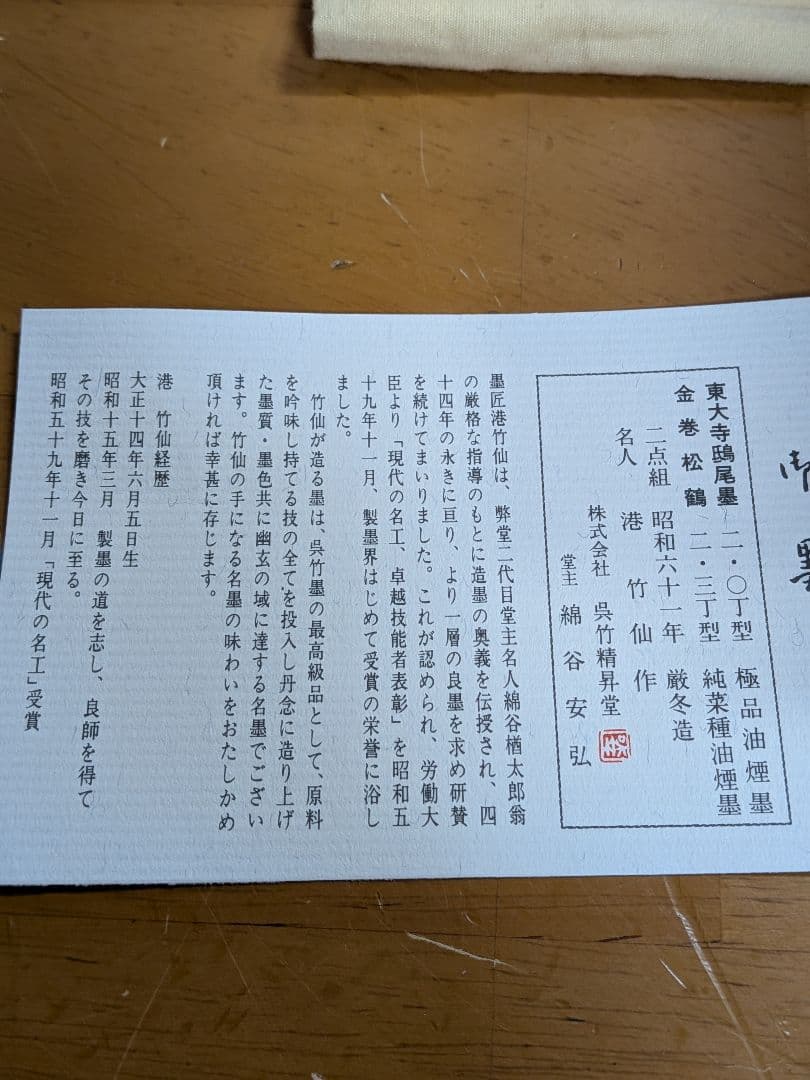 御墨
東大寺鴟尾墨　二・〇丁型　極品油煙墨
金巻松鶴　二・三丁型　純菜種油煙墨
二点組　昭和六十一年　厳冬造
名人　港竹仙作
株式会社　呉竹精昇堂
堂主　綿谷安弘
墨匠港竹仙は、弊堂二代目堂主名人綿谷楢太郎翁
の厳格な指導のもとに造墨の奥義を伝授され、四
十四年の永きに亘り、より一層の良墨を求め研賛
を続けてまいりました。これが認められ、労働大
臣より「現代の名工、卓越技能者表彰」を昭和五
十九年十一月、製墨界はじめて受賞の栄誉に浴し
ました。
竹仙が造る墨は、呉竹墨の最高級品として、原料
を吟味し持てる技の全てを投入し丹念に造り上げ
た墨質・墨色共に幽玄の域に達する名墨でござい
ます。竹仙の手になる名墨の味わいをおたしかめ
頂ければ幸甚に存じます。
港　竹仙経歴
大正十四年六月五日生
昭和十五年三月　製墨の道を志し、良師を得て
その技を磨き今日に至る。
昭和五十九年十一月「現代の名工」受賞